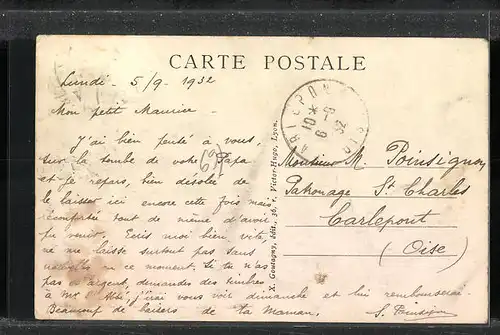 CARTE POSTALE
Lundi - 5/9 - 1932
Mon petit Maurice -
J'ai bien pensé à vous,
sur la tombe de votre Papa
et je repars, bien désolée de
le laisser ici encore cette fois mais
réconfortée tout de même d'avoir
pu venir. Ecris moi bien vite,
ne me laisse surtout pas sans
nouvelles en ce moment. Si tu n'as
pas d'argent, demandes des timbres
à Mr l'Abbé, j'irai vous voir dimanche et lui rembourserai.
Beaucoup de baisers de ta Maman,
S. Poinsignon
X. Goutagny, édit., 36, r. Victor-Hugo, Lyon.
10 *
6 - 9
32
69
Monsieur M. Poinsignon,
Patronage St Charles
Carlepont
(Oise)